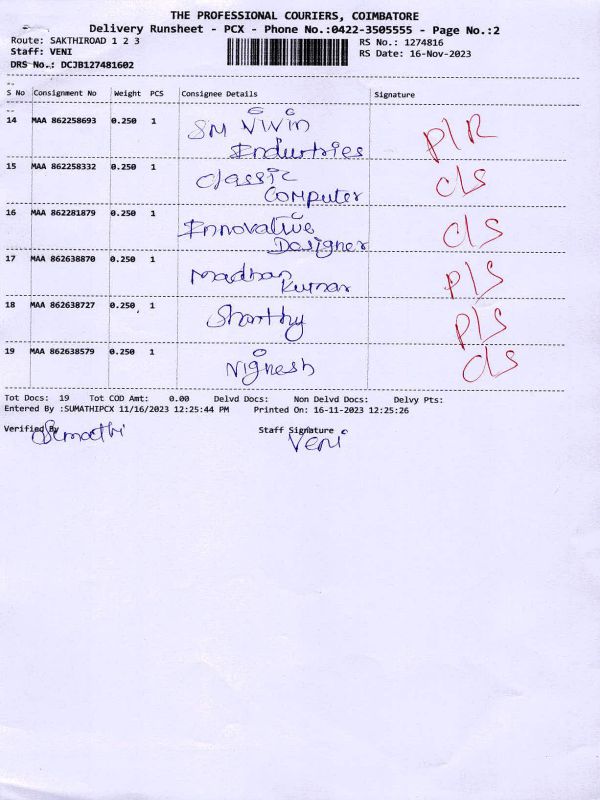 THE PROFESSIONAL COURIERS, COIMBATORE
Delivery Runsheet - PCX - Phone No.:0422-3505555 - Page No.:2
Route: SAKTHIROAD 1 2 3 RS No.: 1274816
Staff: VENI RS Date: 16-Nov-2023
DRS No.: DCJB127481602
S No Consignment No Weight PCS Consignee Details Signature
14 MAA 862258693 0.250 1 SM ViVin P/R
Industries
15 MAA 862258332 0.250 1 Classic C/S
Computer
16 MAA 862281879 0.250 1 Innovative C/S
Designer
17 MAA 862638870 0.250 1 Madhan P/S
Kumar
18 MAA 862638727 0.250 1 Shanthy P/S
19 MAA 862638579 0.250 1 Vignesh C/S
Tot Docs: 19 Tot COD Amt: 0.00 Delvd Docs: Non Delvd Docs: Delvy Pts:
Entered By :SUMATHIPCX 11/16/2023 12:25:44 PM Printed On: 16-11-2023 12:25:26
Verified By Staff Signature
Sumathi Veni